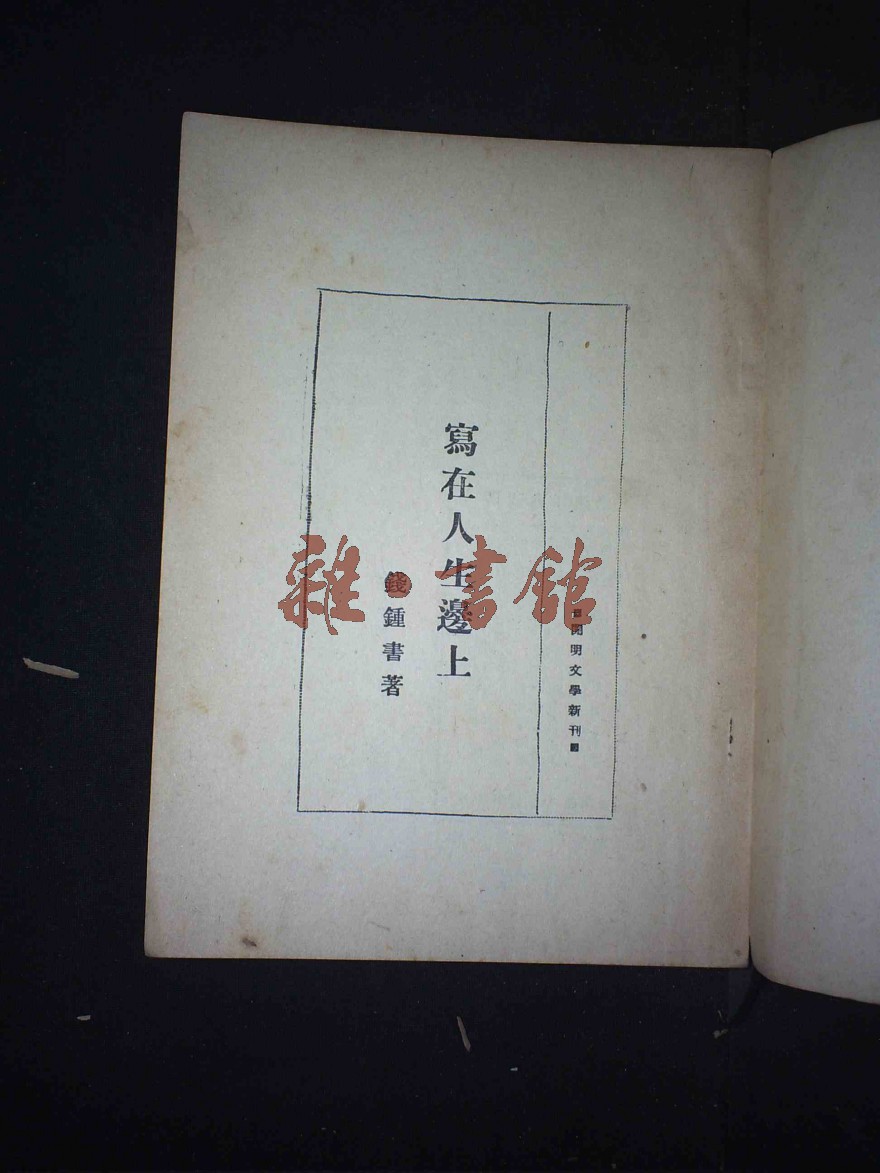 開明文學新刊
寫在人生邊上
錢鍾書著
雜·書館